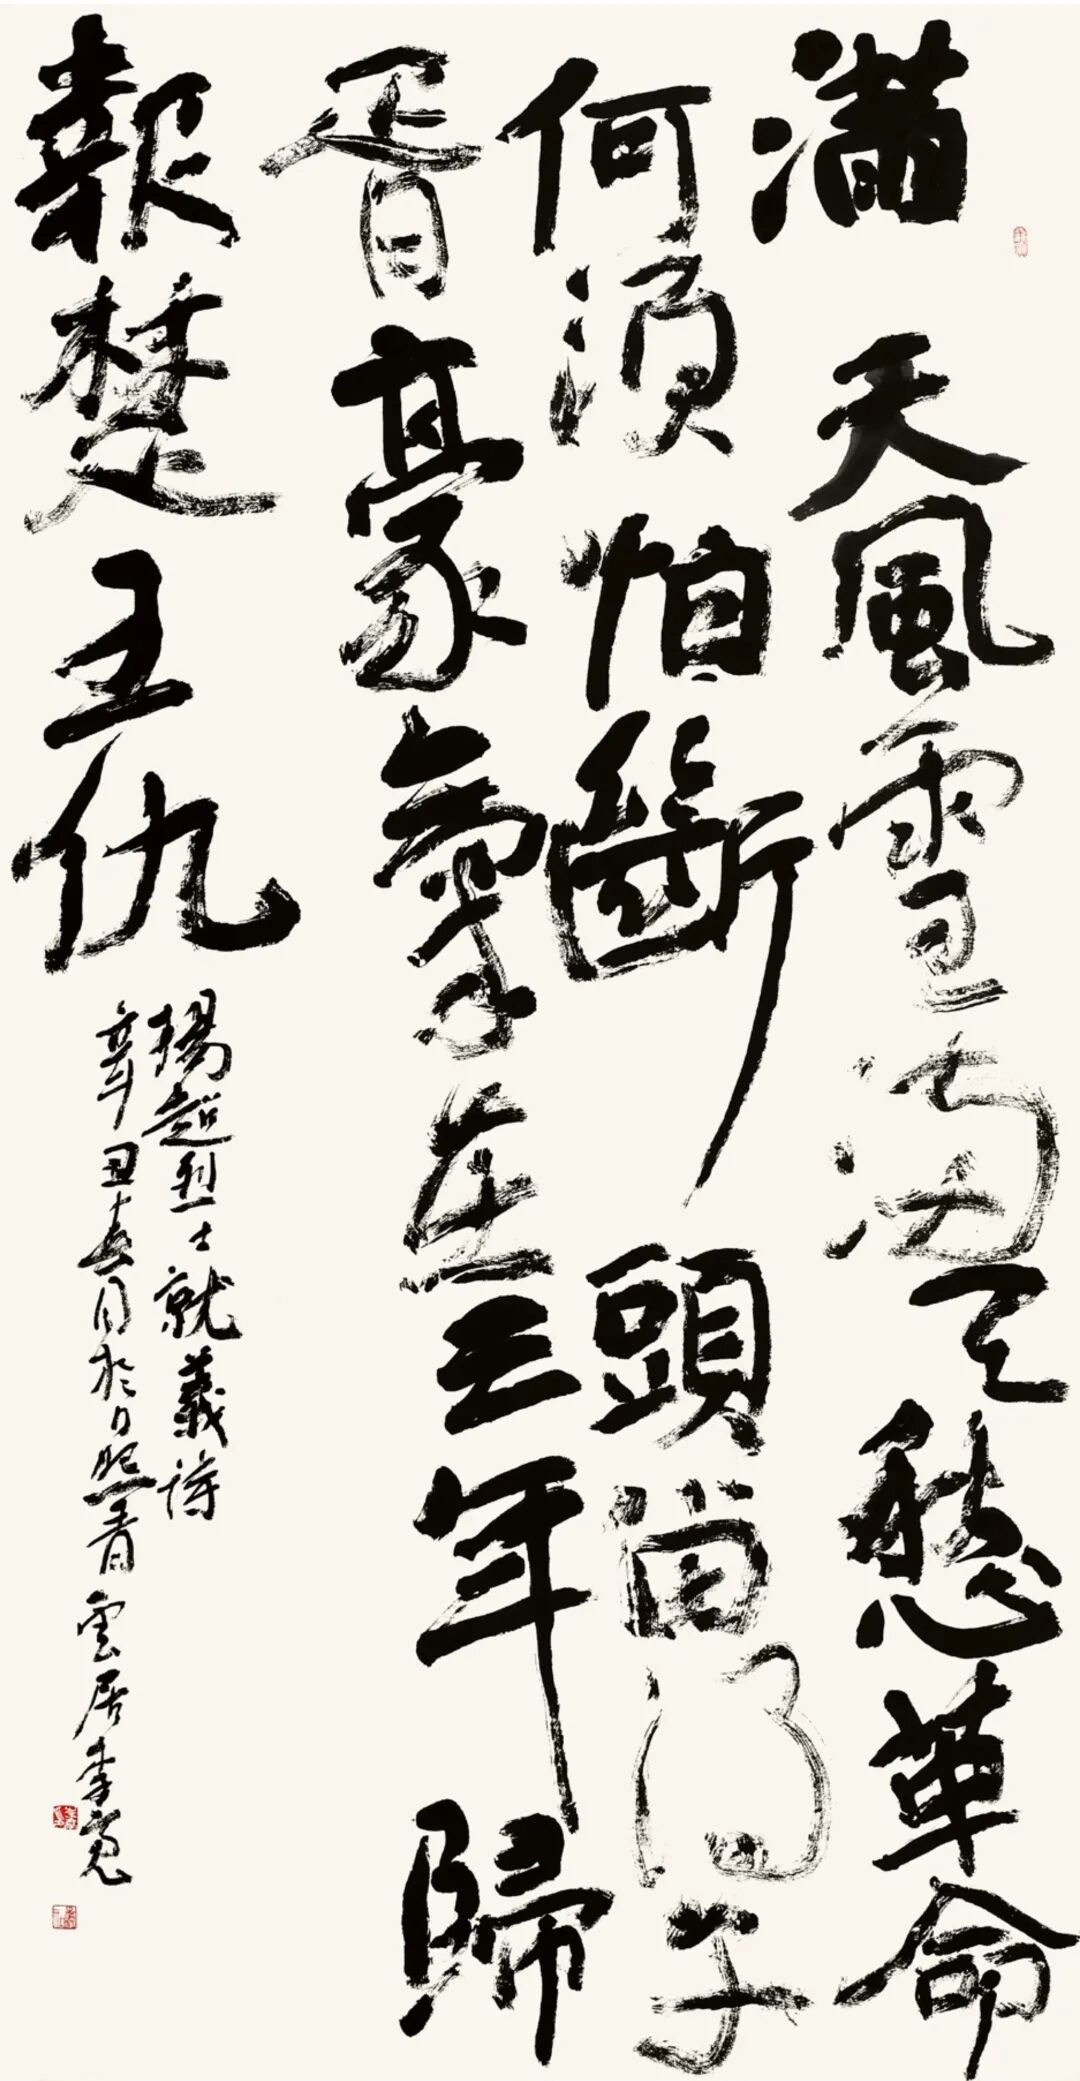 滿天風雪滿天愁革命
何須怕斷頭留得子
胥豪氣在三年歸
報楚王仇
楊超烈士就義詩
辛丑春月於日照青雲居李寬